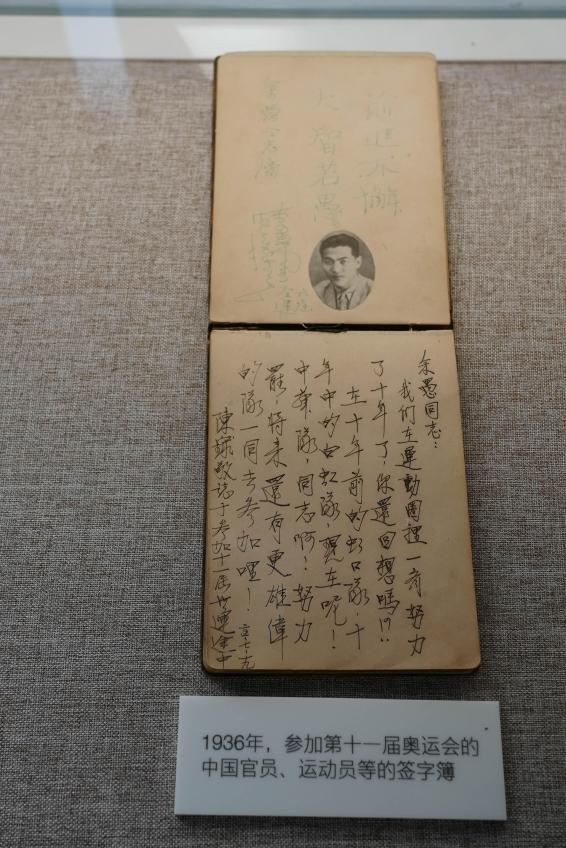 前進不懈
大智若愚
余愚同志：
我们在運動圈裡一齐努力
了十年了，你還回想嗎！？！
在十年前的虹口隊，十
年中的白虹隊，現在呢！
中華隊，同志啊！努力
罷！将来還有更雄偉
的隊一同去参加哩！
陳 敬誌于参加十一届世運途中
1936年，参加第十一届奥运会的
中国官员、运动员等的签字簿